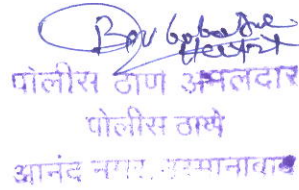 पोलीस ठाणे अंमलदार
पोलीस ठाणे
आनंद नगर, उस्मानाबाद